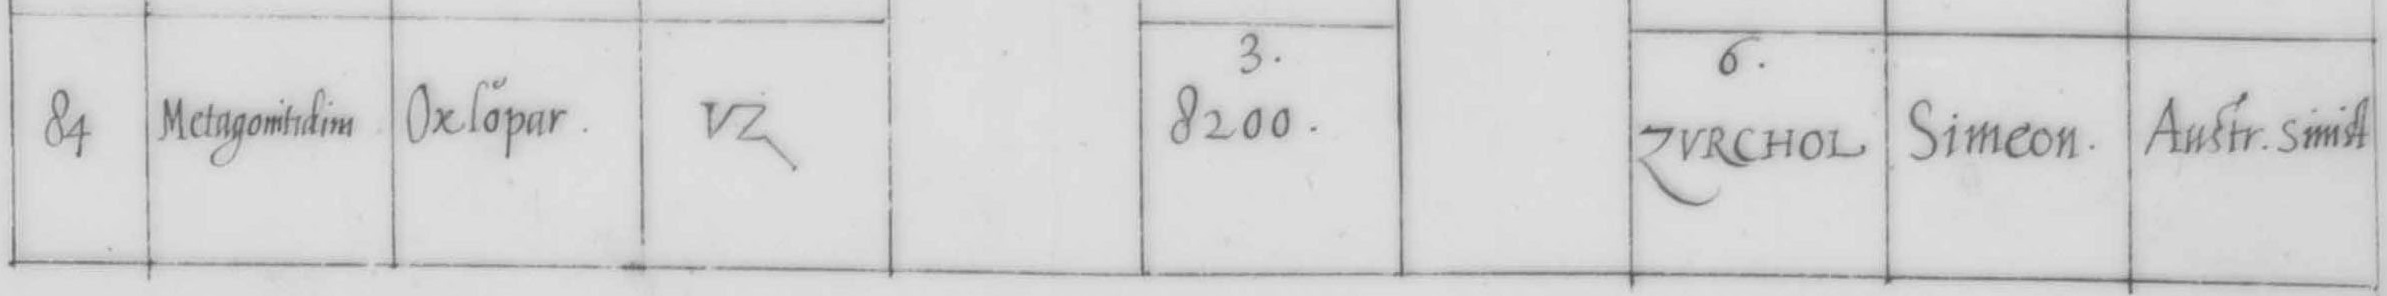 3.
6.
84 Metagonitidim Oxlŏpar. 8200. ZVRCHOL Simeon. Austr. sinist